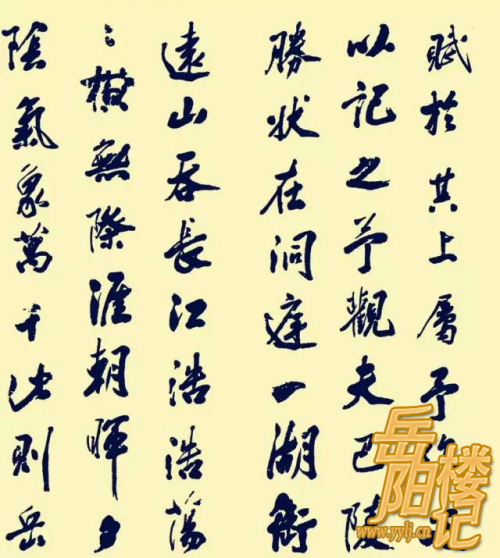 賦於其上屬予
以記之予觀夫巴陵
勝状在洞庭一湖銜
遠山吞長江浩浩蕩
〻橫無際涯朝暉夕
陰氣象萬千此則岳
岳阳楼记
www.yylj.cn